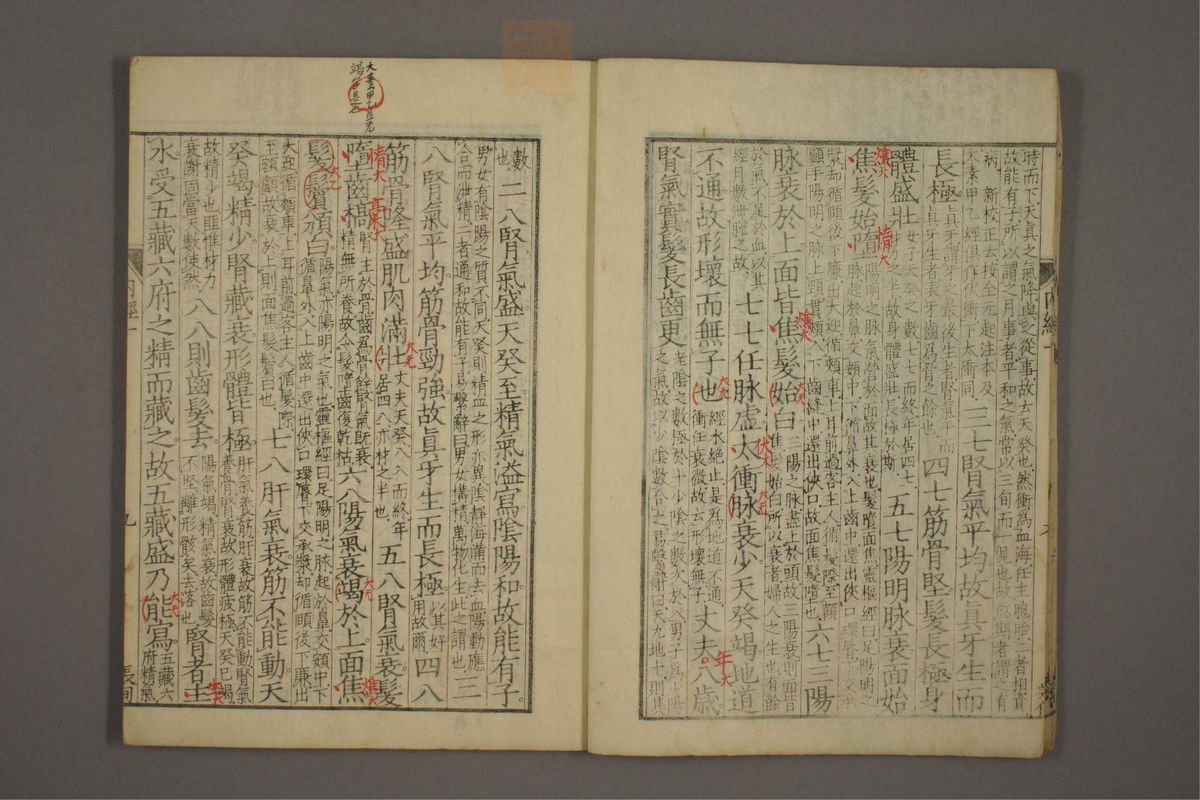 時而下天真之氣降與之從事故云天癸也然衝爲血海任主胞胎二者相資
故能有子所以謂之月事者平和之氣常以三旬而一見也故愆期者謂之有
病 新校正云按全元起注本及
太素甲乙經俱作伏衝下太衝同 三七腎氣平均故真牙生而
長極 真牙謂牙之最後生者腎氣平而
真牙生者表牙齒爲骨之餘也 四七筋骨堅髮長極身
體盛壯 女子天癸之數七七而終年居四七
材力之半故身體盛壯長極於斯 五七陽明脉衰面始
焦髮始墮 陽明之脉氣營於面故其衰也髮墮面焦靈樞經曰足陽明之
脉起於鼻交頞中下循鼻外入上齒中還出俠口環脣下交承
漿却循頤後下廉出大迎循頰車上耳前過客主人循髮際至額
顱手陽明之脉上頸貫頰入下齒縫中還出俠口故面焦髮墮也 六七三陽
脉衰於上面皆焦髮始白 三陽之脉盡上於頭故三陽衰則面皆
焦髮始白所以衰者婦人之生也有餘
於氣不足於血以其
經月數泄脫之故 七七任脉虛太衝脉衰少天癸竭地道
不通故形壞而無子也 經水絶止是爲地道不通
衝任衰微故云形壞無子 丈夫八歲
腎氣實髮長齒更 老陰之數極於十少陰之數次於八男子爲少陽
之氣故以少陰數合之易繫辭曰天九地十則其
數
也 二八腎氣盛天癸至精氣溢寫陰陽和故能有子
男女有陰陽之質不同天癸則精血之形亦異陰靜海滿而去血陽動應
合而泄精二者通和故能有子易繫辭曰男女構精萬物化生此之謂也 三
八腎氣平均筋骨勁強故真牙生而長極 以其好
用故爾 四八
筋骨隆盛肌肉滿壯 丈夫天癸八八而終年
居四八亦材之半也 五八腎氣衰髮
墮齒槁 腎主於骨齒爲骨餘腎氣既衰
精無所養故令髮墮齒復乾枯 六八陽氣衰竭於上面焦
髮鬢頒白 陽氣亦陽明之氣也靈樞經曰足陽明之脉起於鼻交頞中下
循鼻外入上齒中還出俠口環脣下交承漿却循頤後下廉出
大迎循頰車上耳前過客主人循髮際
至額顱故衰於上則面焦髮鬢白也 七八肝氣衰筋不能動天
癸竭精少腎藏衰形體皆極 肝氣養筋肝衰故筋不能動腎氣
養骨腎衰故形體疲極天癸已竭
故精少也匪惟材力
衰謝固當天數使然 八八則齒髮去 陽氣竭精氣衰故齒髮
不堅離形骸矣去落也 腎者主
水受五藏六府之精而藏之故五藏盛乃能寫 五藏六
府精氣
焦大
惰大
焦大
大元
伏大
大元
年大
惰大
槀大
大元
大元
焦大
内經一
九